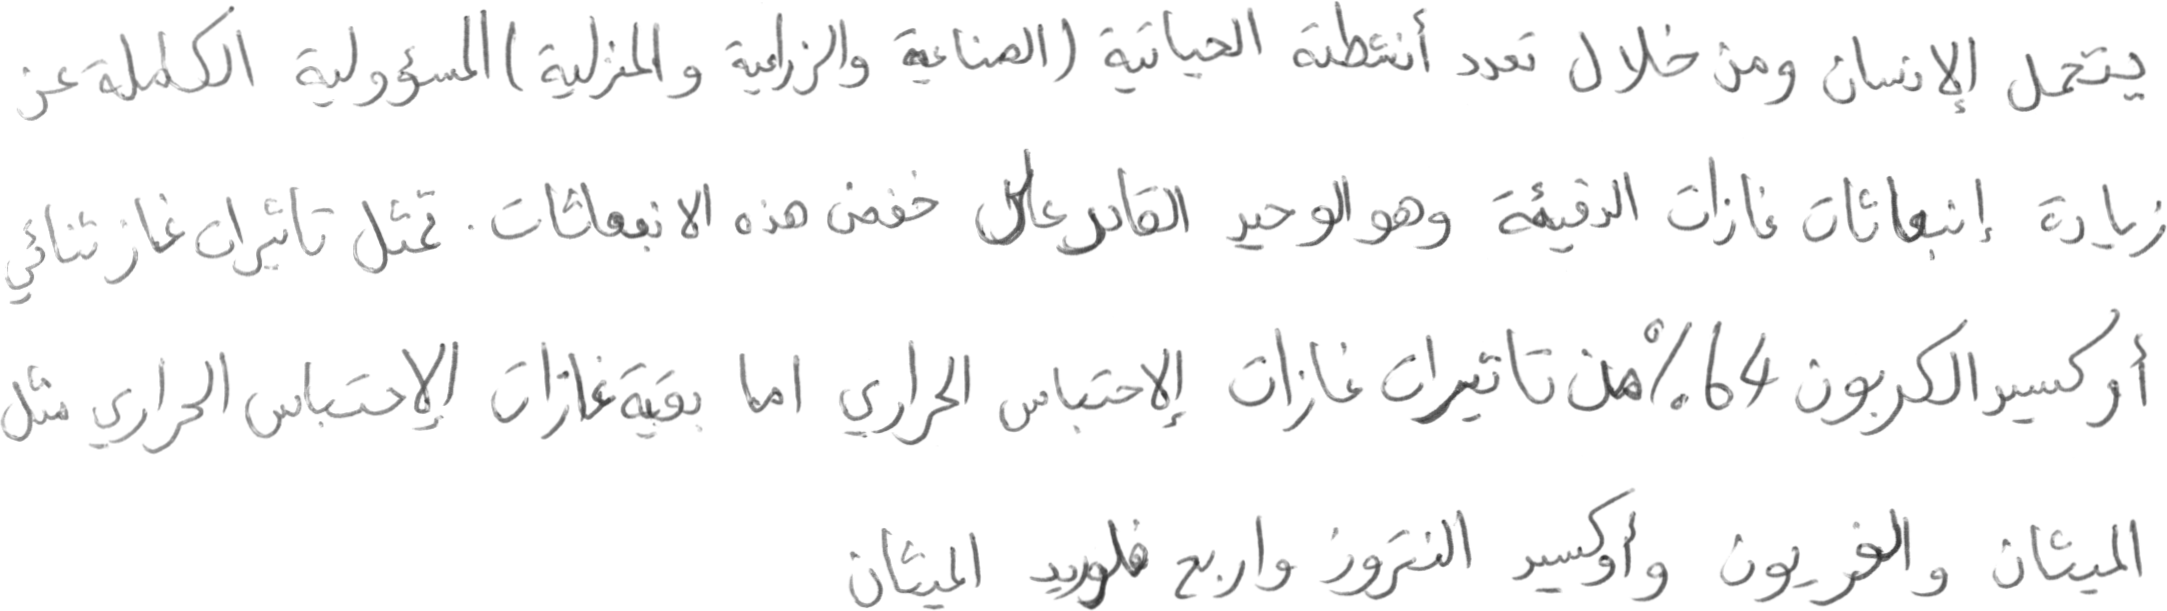 يتحمل الإنسان ومن خلال تعدد أنشطته الحياتية (الصناعية والزراعية والمنزلية) المسؤولية الكاملة عن
زيادة إنبعاثات غازات الدفيئة وهو الوحيد القادر على خفض هذه الانبعاثات. تمثل تاثيرات غاز ثنائي
أوكسيد الكربون 64% من تاثيرات غازات الإحتباس الحراري اما بقية غازات الإحتباس الحراري مثل
الميثان والفريون وأوكسيد النتروز واربع فلوريد الميثان